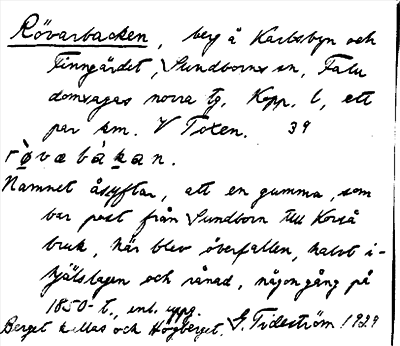 Rövarbacken, berg å Karlsbyn och
Finngärdet, Sundborns sn, Falu
domsagas norra tg, Kopp. l, ett
par km. V Toxen. 39
rövarbàkan.
Namnet åsyftar, att en gumma, som
bar post från Sundborn till Korså
bruk, här blev överfallen, halvt i-
hjälslagen och rånad, någon gång på
1850-t., enl. uppg.
Berget kallas och Högberget. G. Tideström 1929